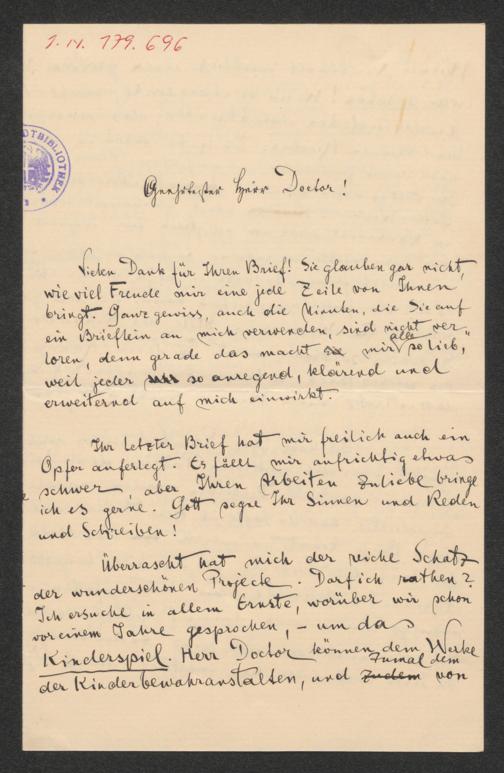 J. N. 179.696
DTBIBLIOTHEK
Geehrtester Herr Doctor!
Vielen Dank für Ihren Brief! Sie glauben gar nicht,
wie viel Freude mir eine jede Zeile von Ihnen
bringt. Ganz gewiss, auch die Minuten, die Sie auf
ein Brieflein an mich verwenden, sind nicht ver-
loren, denn gerade das macht mir alle so lieb,
weil jeder so anregend, klärend und
erweiternd auf mich einwirkt.
Ihr letzter Brief hat mir freilich auch ein
Opfer auferlegt. Es fällt mir aufrichtig etwas
schwer, aber Ihren Arbeiten zuliebe bringe
ich es gerne. Gott segne Ihr Sinnen und Reden
und Schreiben!
Überrascht hat mich der reiche Schatz
der wunderschönen Projecte. Darf ich rathen?
Ich ersuche in allem Ernste, worüber wir schon
vor einem Jahre gesprochen, – um das
Kinderspiel. Herr Doctor können dem Werke
der Kinderbewahranstalten, und zudem zumal dem von